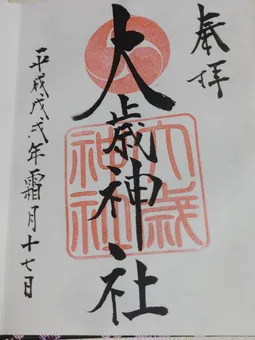 奉拝
大歳神社
大歳
神社
平成戊戌年霜月十七日